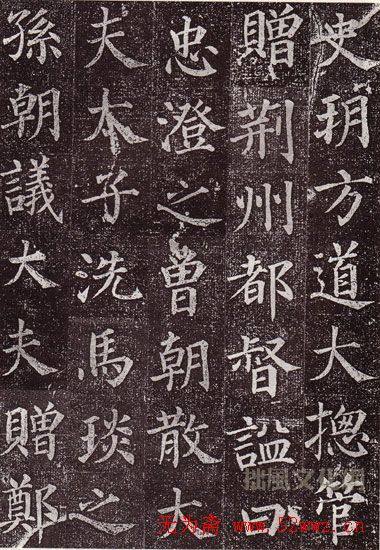 史朔方道大摠管
贈荊州都督諡曰
忠澄之曾朝散大
夫太子洗馬琰之
孫朝議大夫贈鄭
拙風文化網
无为斋 www.52wwz.cn